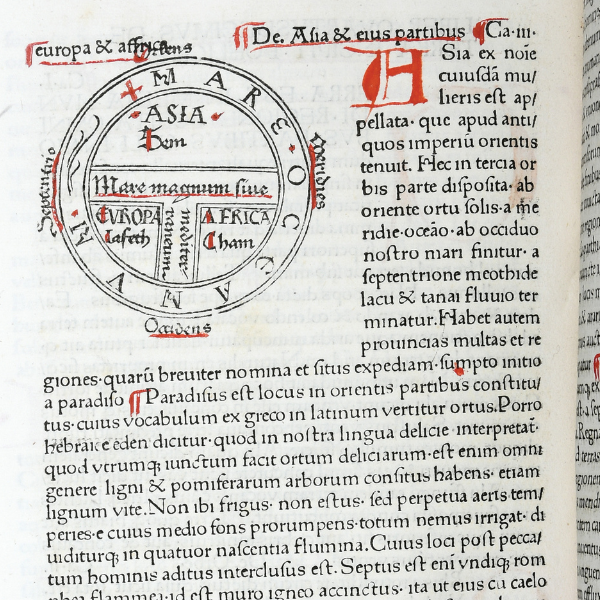 europa & affrica
Oriens
De. Asia & eius partibus Ca·iii·
ASia ex noīe
cuiusdā mu/
lieris est ap/
pellata· que apud anti/
quos imperiū orientis
tenuit. Hec in tercia or
bis parte disposita· ab
oriente ortu solis· a me
ridie·oceāo· ab occiduo
nostro mari finitur· a
septentrione meothide
lacu & tanai fluuio ter
minatur. Habet autem
prouincias multas et re
giones· quarū breuiter nomina et situs expediam· sumpto initio
a paradiso Paradisus est locus in orientis partibus constitu/
tus· cuius vocabulum ex greco in latinum vertitur ortus. Porro
hebraice eden dicitur· quod in nostra lingua delicie interpretat̄·
quod vtrumq; iunctum facit ortum deliciarum· est enim omni
genere ligni & pomiferarum arborum consitus habens· etiam
lignum vite. Non ibi frigus· non estus· sed perpetua aeris tem/
peries· e cuius medio fons prorumpens· totum nemus irrigat· di
uiditurq; in quatuor nascentia flumina. Cuius loci post pecca/
tum hominis aditus interclusus est. Septus est eni vndiq; rom
phea flammea· id est muro igneo accinctus· ita ut eius cu caelo
MARE OCEANUM
ASIA
Sem
Mare magnum siue
mediter
raneum
EVROPA
Iafeth
AFRICA
Cham
Septentrio
Meridies
Occidens